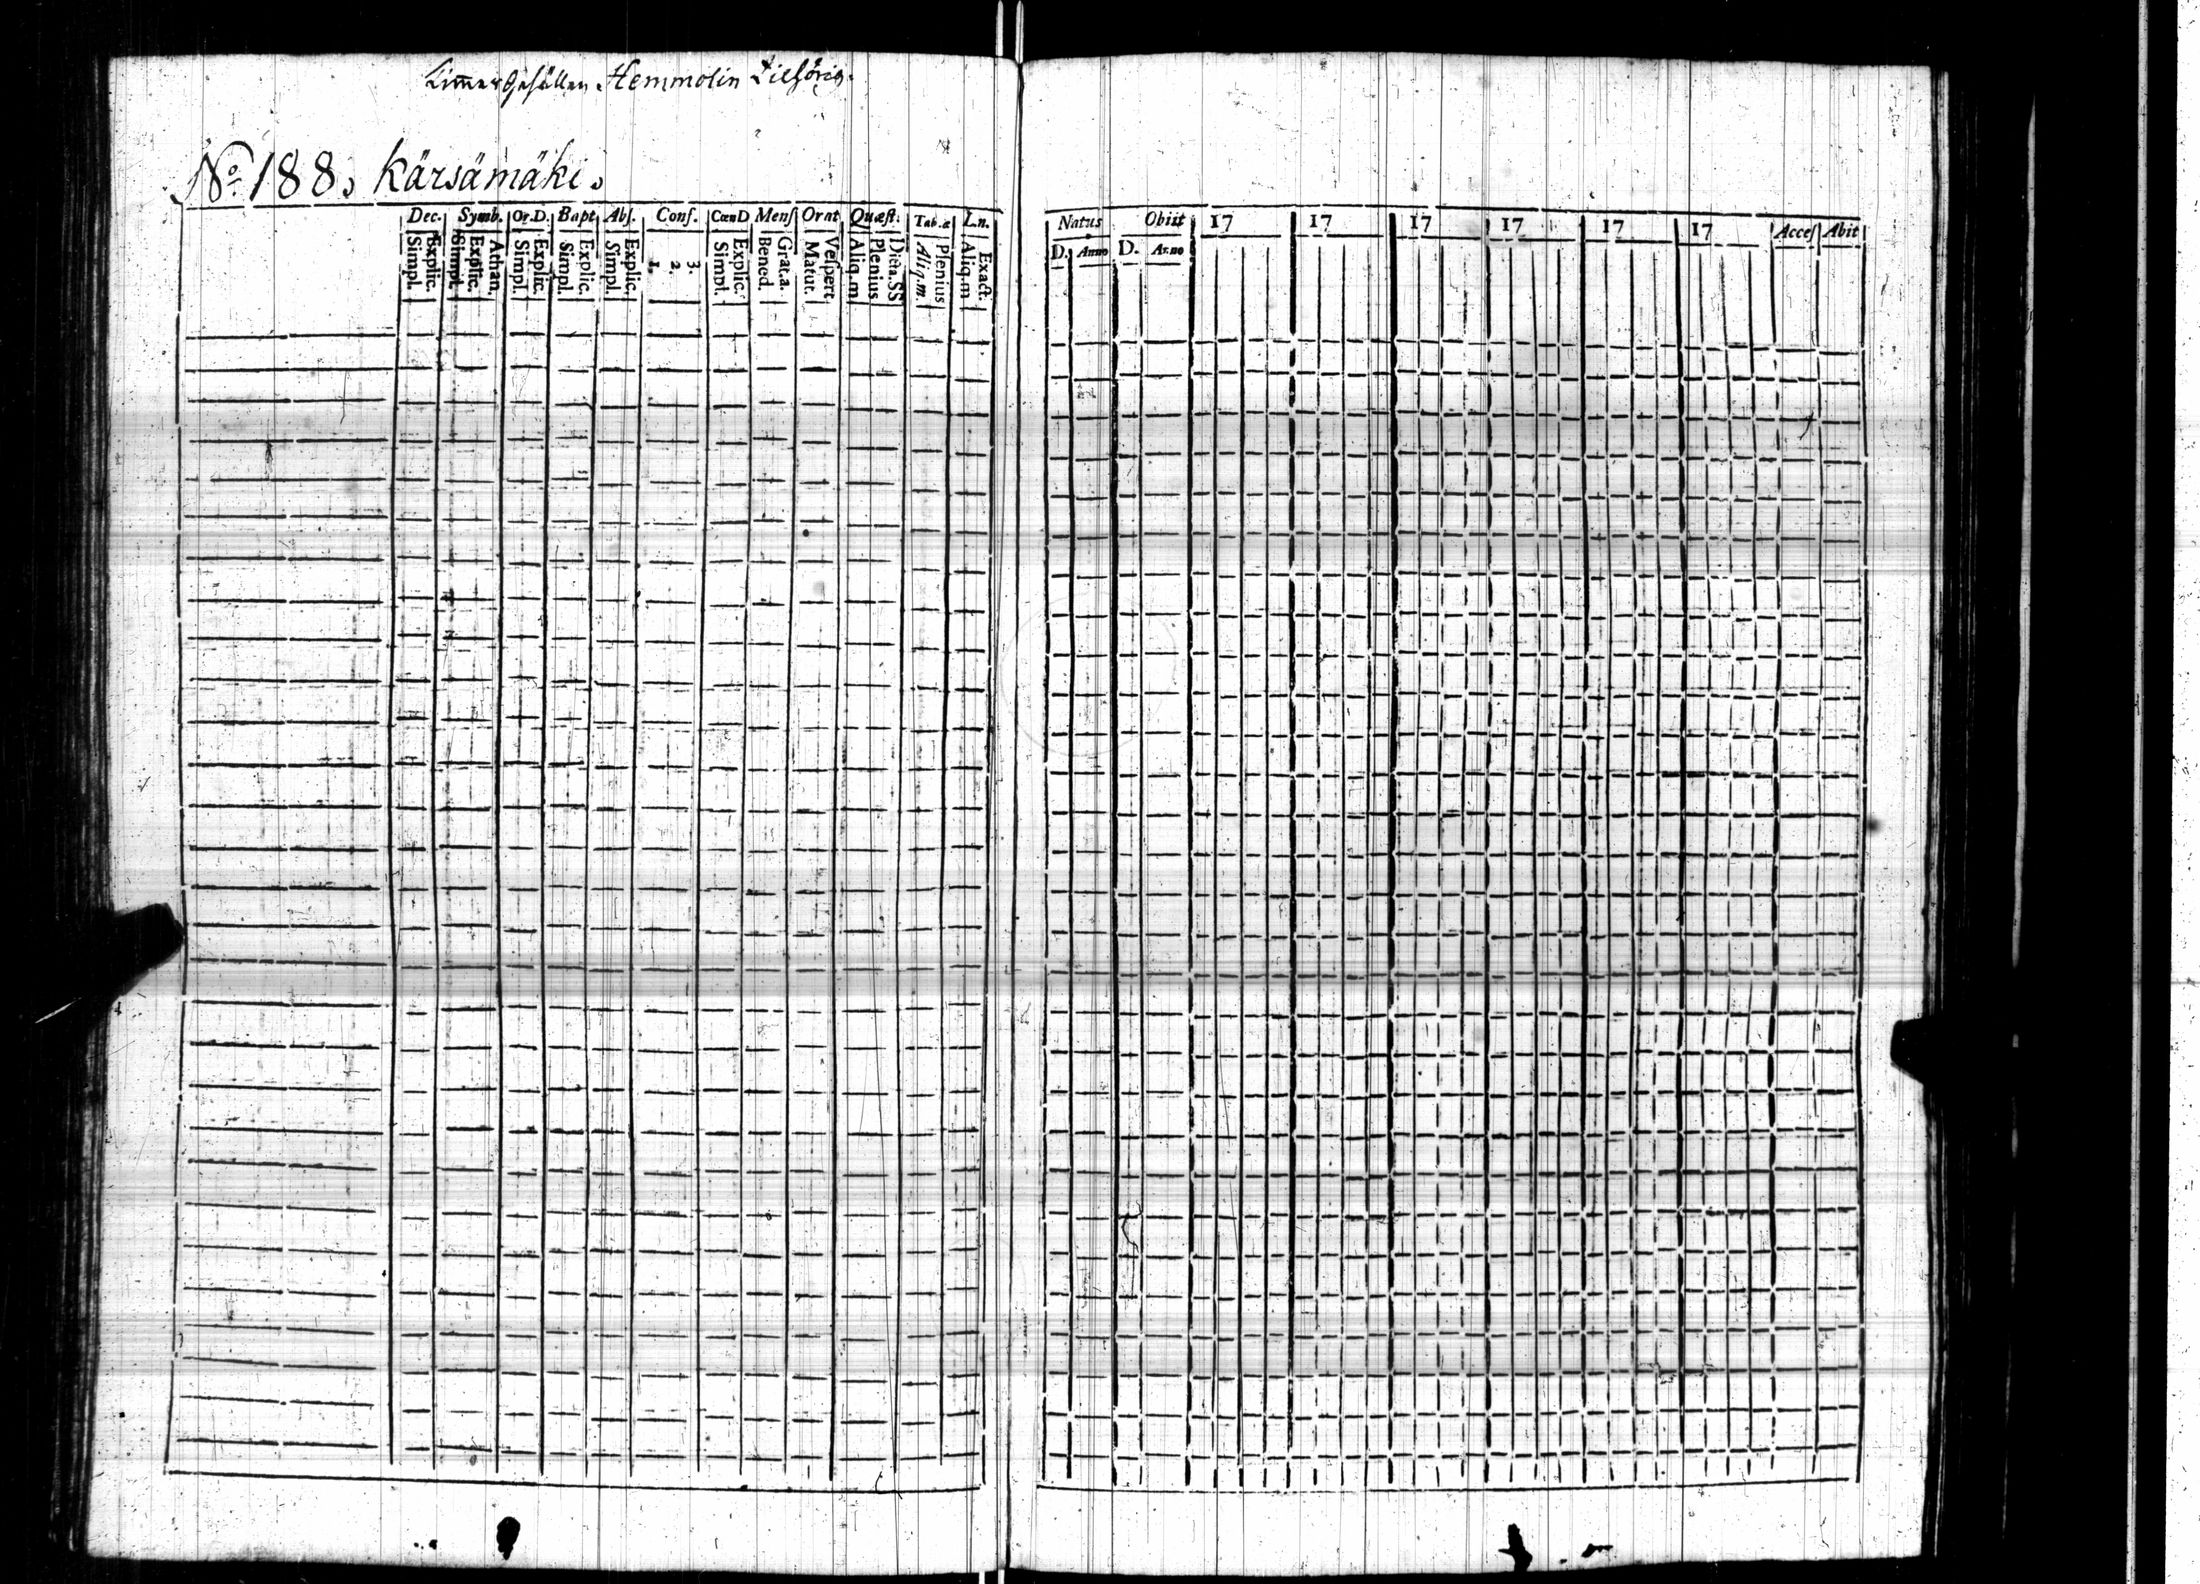 Hemmolin
No 188. Kärsämäki.
Dec. Symb. Or.D. Bapt Abs. Conf. CœnD Menſ Orat Quæſt. Tab.æ L.n.
Simpl. Explic. Simpl. Explic. Athan. Simpl. Explic. Simpl. Explic. Simpl. Explic. 1. 2. 3. Simpl. Explic. Bened. Grat.a. Matut. Veſpert Aliq.m Plenius Dicta.SS Aliq.m. Plenius Aliq.m Exact.
Natus Obiit 17 17 17 17 17 17 Acceſ Abit
D. Anno D. Anno